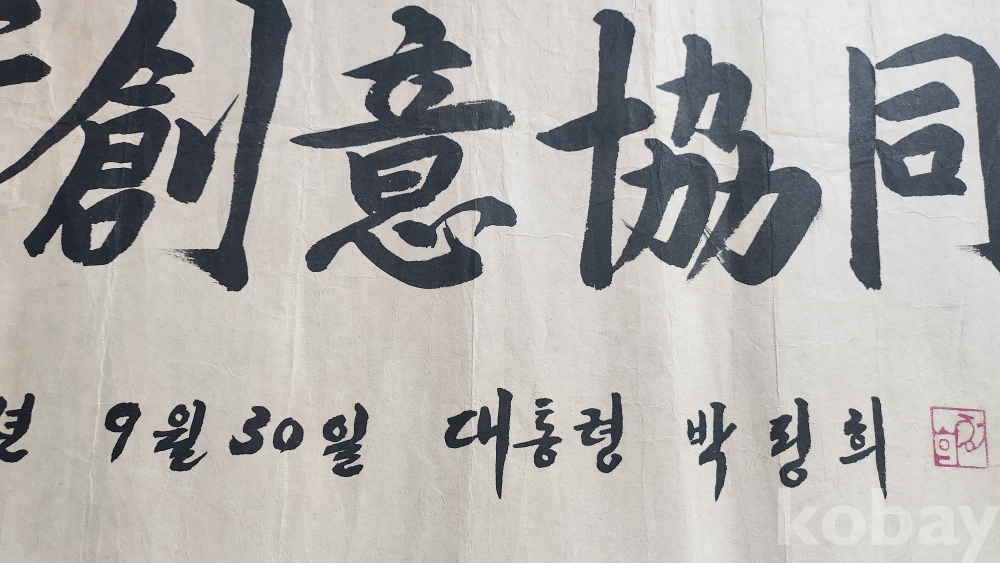 創意協同
년 9월 30일 대통령 박정희
kobay